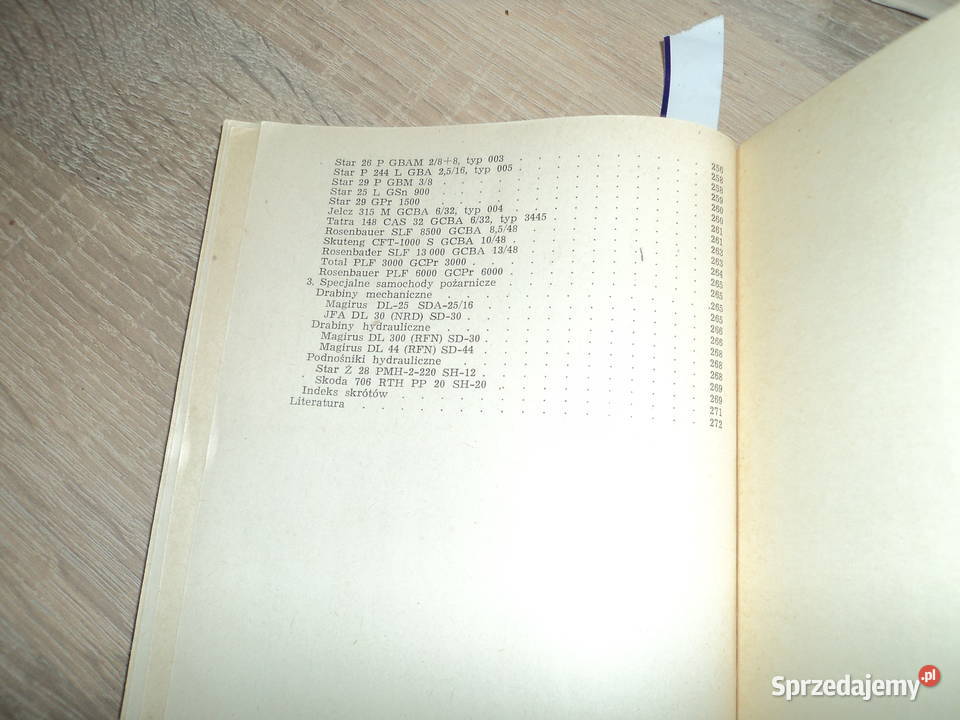 Star 26 P GBAM 2/8+8, typ 003 . . . . . . . 256
Star P 244 L GBA 2,5/16, typ 005 . . . . . . . 258
Star 29 P GBM 3/8 . . . . . . . . . 258
Star 25 L GSn 900 . . . . . . . . . 259
Star 29 GPr 1500 . . . . . . . . . 260
Jelcz 315 M GCBA 6/32, typ 004 . . . . . . . 260
Tatra 148 CAS 32 GCBA 6/32, typ 3445 . . . . . . 261
Rosenbauer SLF 8500 GCBA 8,5/48 . . . . . . . 261
Skuteng CFT-1000 S GCBA 10/48 . . . . . . . 263
Rosenbauer SLF 13 000 GCBA 13/48 . . . . . . . 263
Total PLF 3000 GCPr 3000 . . . . . . . . 264
Rosenbauer PLF 6000 GCPr 6000 . . . . . . . 265
3. Specjalne samochody pożarnicze . . . . . . . 265
Drabiny mechaniczne . . . . . . . . . 265
Magirus DL-25 SDA-25/16 . . . . . . . . 265
JFA DL 30 (NRD) SD-30 . . . . . . . . 266
Drabiny hydrauliczne . . . . . . . . . 266
Magirus DL 300 (RFN) SD-30 . . . . . . . . 268
Magirus DL 44 (RFN) SD-44 . . . . . . . . 268
Podnośniki hydrauliczne . . . . . . . . . 268
Star Ż 28 PMH-2-220 SH-12 . . . . . . . . 269
Skoda 706 RTH PP 20 SH-20 . . . . . . . . 269
Indeks skrótów . . . . . . . . . . 271
Literatura . . . . . . . . . . . 272
Sprzedajemy.pl